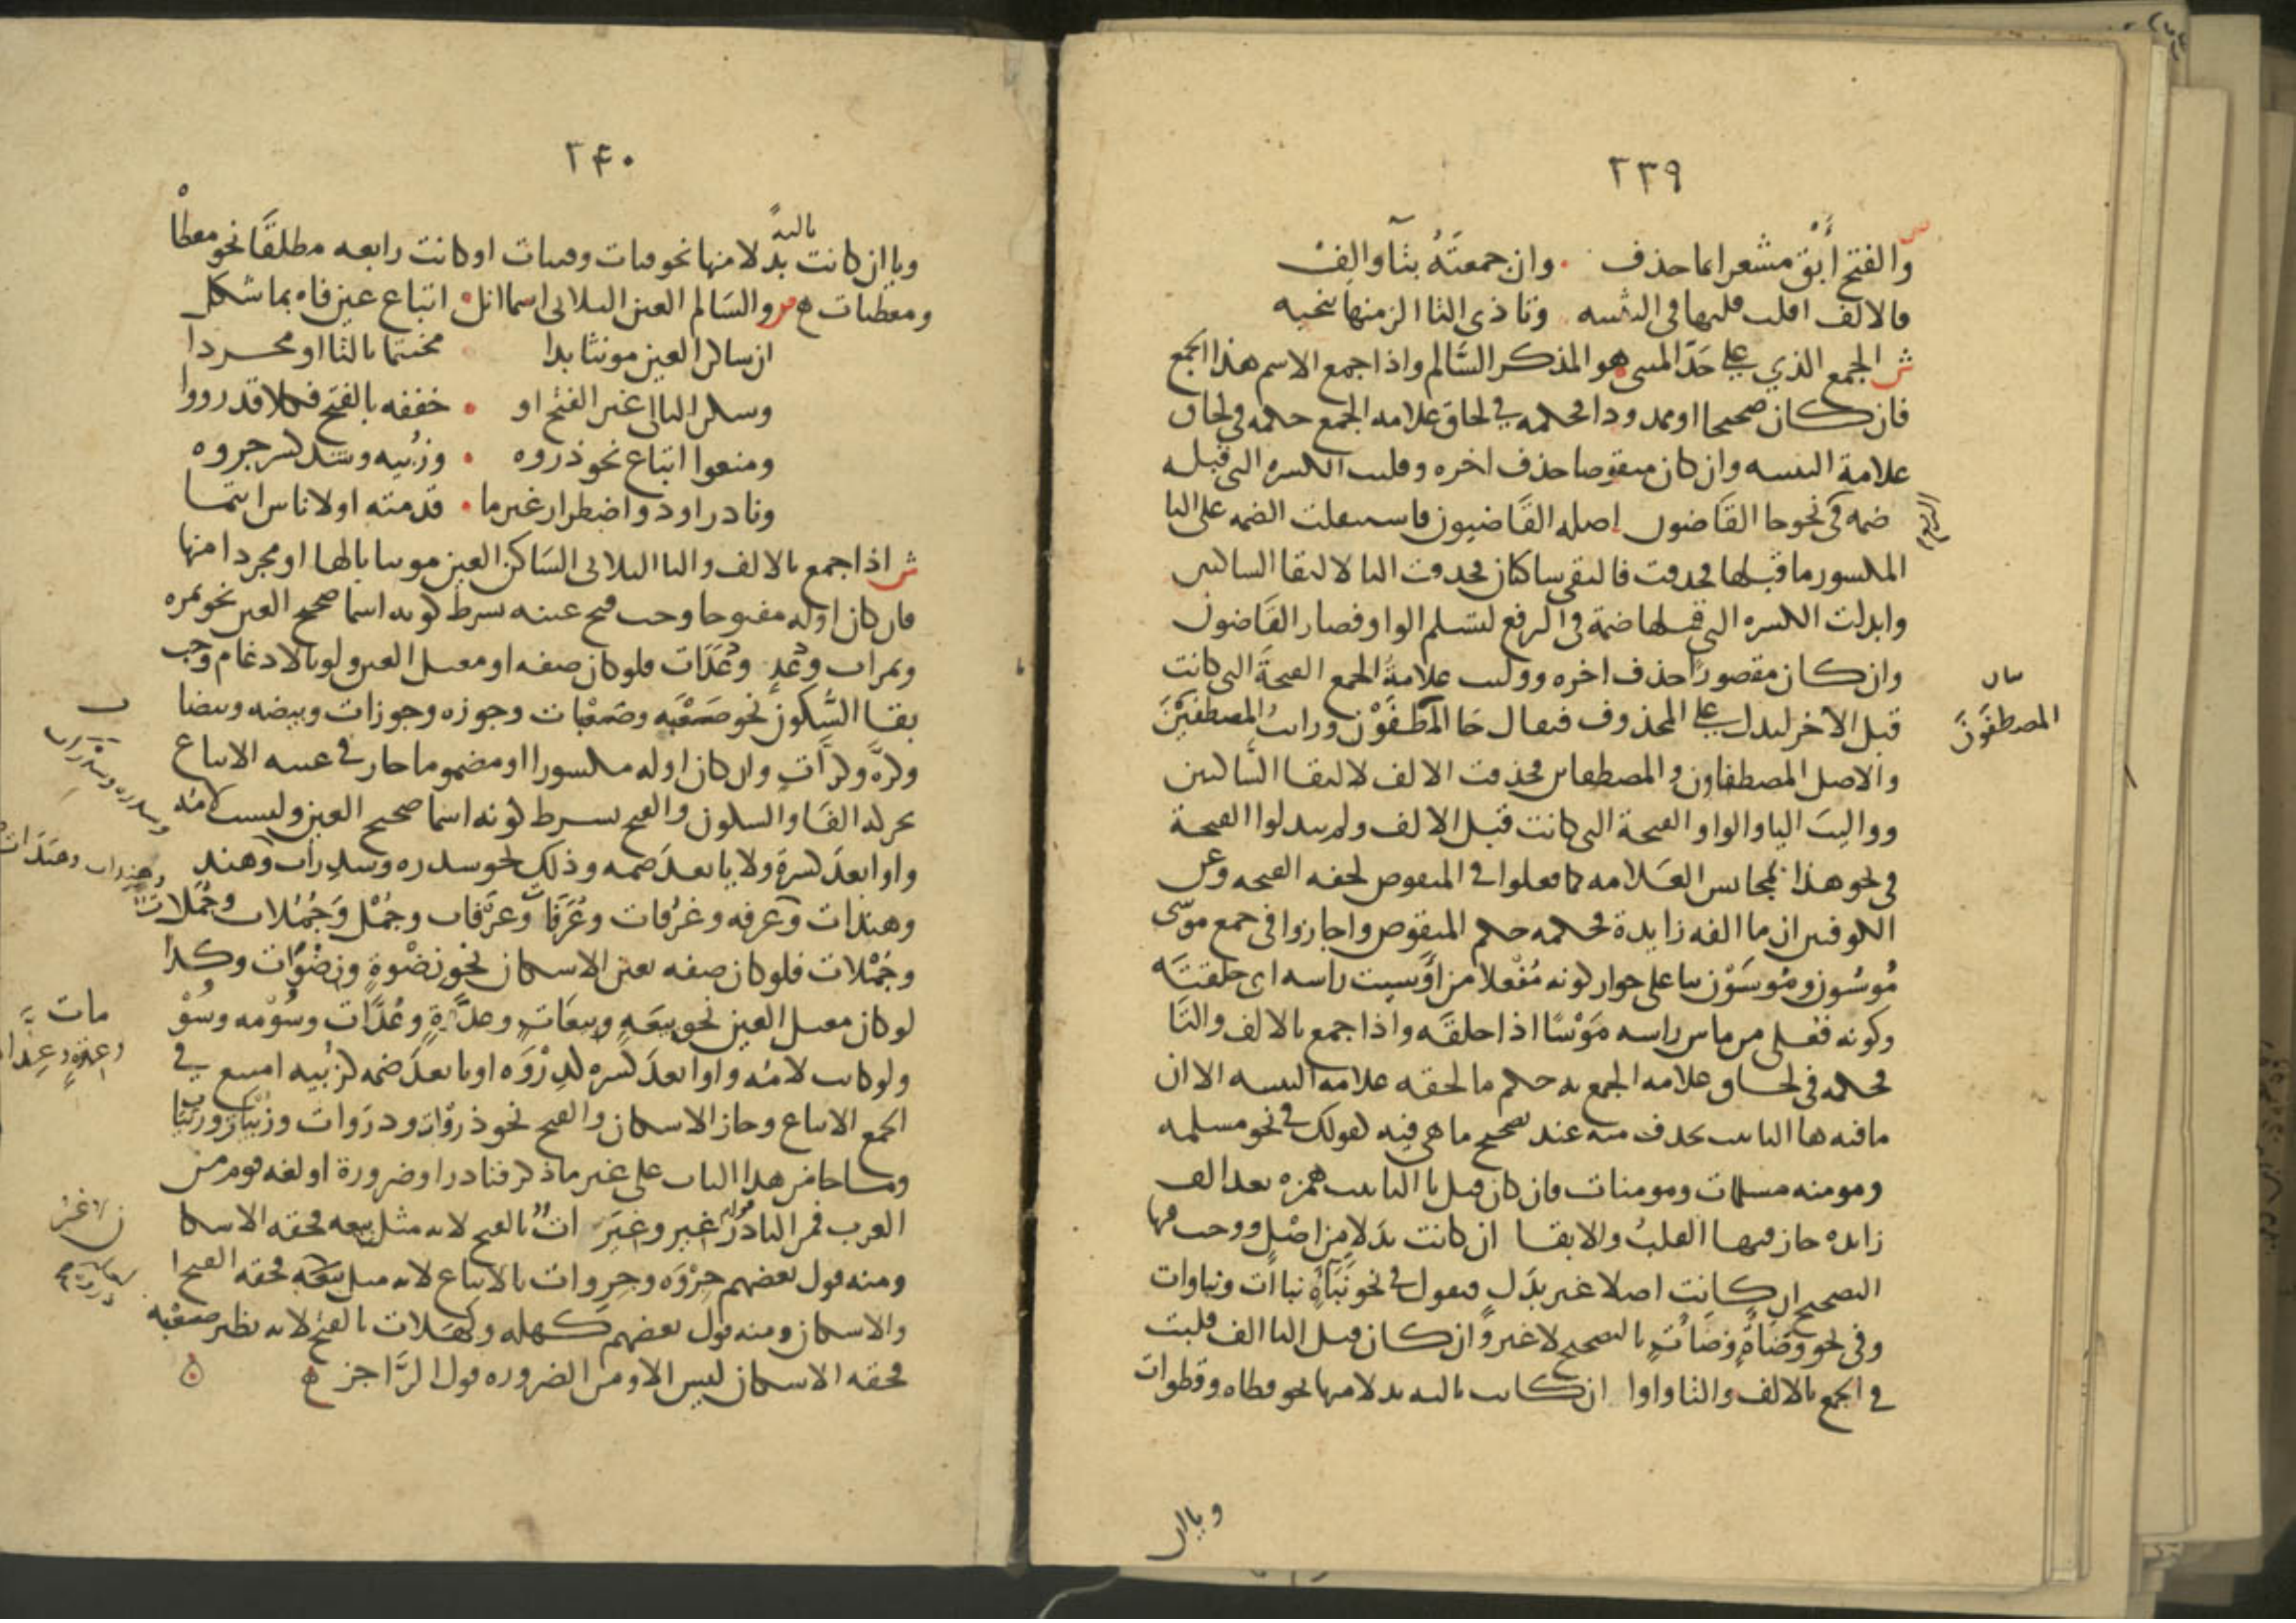 ٢٣٩
ص
والفتح أبق مشعرا بما حذف . وان جمعته بتآ والف
فالالف اقلب قلبها في التثنيه وتا ذي التا الزمنها تنحيه
ش الجمع الذي على حد المثنى هو المذكر السالم واذا جمع الاسم هذا الجمع
فان كان صحيحا او ممدودا فحكمه في لحاق علامه الجمع حكمه في لحاق
علامة التثنيه وان كان منقوصا حذف اخره وقلبت الكسره التي قبله
ضمه في نحو جا القاضون اصله القاضيون فاستثقلت الضمه على اليا
المكسور ما قبلها فحذفت فالتقى ساكنان فحذفت اليا لالتقا الساكنين
وابدلت الكسره التي قبلها ضمة في الرفع لتسلم الواو فصار القاضون
وان كان مقصورا حذف اخره ووليت علامة الجمع الفتحة التي كانت
قبل الاخر ليدل على المحذوف فيقال جا المصطفون ورايت المصطفين
المصطفون
والاصل المصطفاون والمصطفاين فحذفت الالف لالتقا الساكنين
ووليت اليا والواو الفتحة التي كانت قبل الالف ولم يبدلوا الفتحة
في نحو هذا لمجانس العلامه كما فعلوا في المنقوص لخفه الفتحه وعن
الكوفيين ان ما الفه زايدة فحكمه حكم المنقوص واجازوا في جمع موسى
موسون وموسون بنا على جواز كونه مفعلا من اوسيت راسه اي حلقته
وكونه فعلى من ماس راسه موسا اذا حلقه واذا جمع بالالف والتا
فحكمه في لحاق علامه الجمع به حكم ما لحقه علامه التثنيه الا ان
ما فيه ها التانيث تحذف منه عند تصحيح ما هي فيه كقولك في نحو مسلمه
ومومنه مسلمات ومومنات فان كان قبل تا التانيث همزه بعد الف
زايده جاز فيها القلب والابقا ان كانت بدلا من اصل ووجب فيها
التصحيح ان كانت اصلا غير بدل فيقول في نحو نباة نباات ونباوات
وفي نحو وضاة وضاات بالتصحيح لا غير وان كان قبل التا الف قلبت
في الجمع بالالف والتا واوا ان كانت ثالثه بدلا منها نحو قطاه وقطوات
ويا ان
٢٤٠
ويا ان كانت ثالثه بدلا منها نحو فتاة وفتيات او كانت رابعه مطلقا نحو معطاه
ومعطيات ه ص والسالم العين الثلاثي اسما انل . اتباع عين فاه بما شكل
ان ساكن العين مونثا بدا . مختتما بالتا او مجردا
وسكن التالي غير الفتح او . خففه بالفتح فكلا قد رووا
ومنعوا اتباع نحو ذروه . وزبيه وشذ كسر جروه
ونادر او ذو اضطرار غير ما . قدمته او لاناس انتما
ش اذا جمع بالالف والتا الثلاثي الساكن العين مونثا بالها او مجردا منها
فان كان اوله مفتوحا وجب فتح عينه بشرط كونه اسما صحيح العين نحو تمره
وتمرات ودعد ودعدات فلو كان صفه او معتل العين ولو بالادغام وجب
بقا السكون نحو صعبه وصعبات وجوزه وجوزات وبيضه وبيضا
وكره وكرات وان كان اوله مكسورا او مضموما جاز في عينه الاتباع
بحركه الفا والسكون والفتح بشرط كونه اسما صحيح العين وليست لامه
واوا بعد كسرة ولا يا بعد ضمه وذلك نحو سدره وسدرات وهند
وهندات وغرفه وغرفات وغرفات وغرفات وجمل وجملات وجملات
وجملات فلو كان صفه تعين الاسكان نحو نضوة ونضوات وكذا
لو كان معتل العين نحو بيعه وبيعات وعدة وعدات وسومه وسو
مات
ولو كانت لامه واوا بعد كسره كذروه او يا بعد ضمه كزبيه امتنع في
الجمع الاتباع وجاز الاسكان والفتح نحو ذروات وذروات وزبيات وزبيا
وما جا من هذا الباب على غير ما ذكر فنادر او ضرورة او لغه قوم من
العرب فمن النادر قولهم عير وعيرات بالفتح لانه مثل بيعه فحقه الاسكا
ومنه قول بعضهم جروه وجروات بالاتباع لانه مثل فحقه الفتح
والاسكان ومنه قول بعضهم كهله وكهلات بالفتح لانه نظير صعبه
فحقه الاسكان ليس الا ومن الضروره قول الراجز ه